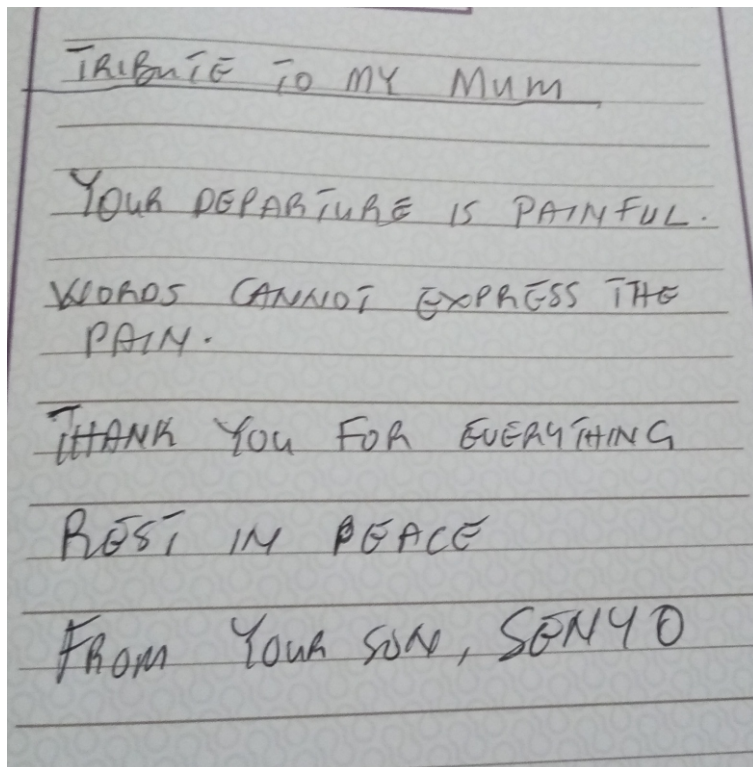 TRIBUTE TO MY MUM
YOUR DEPARTURE IS PAINFUL.
WORDS CANNOT EXPRESS THE
PAIN.
THANK YOU FOR EVERYTHING
REST IN PEACE
FROM YOUR SON, SENYO